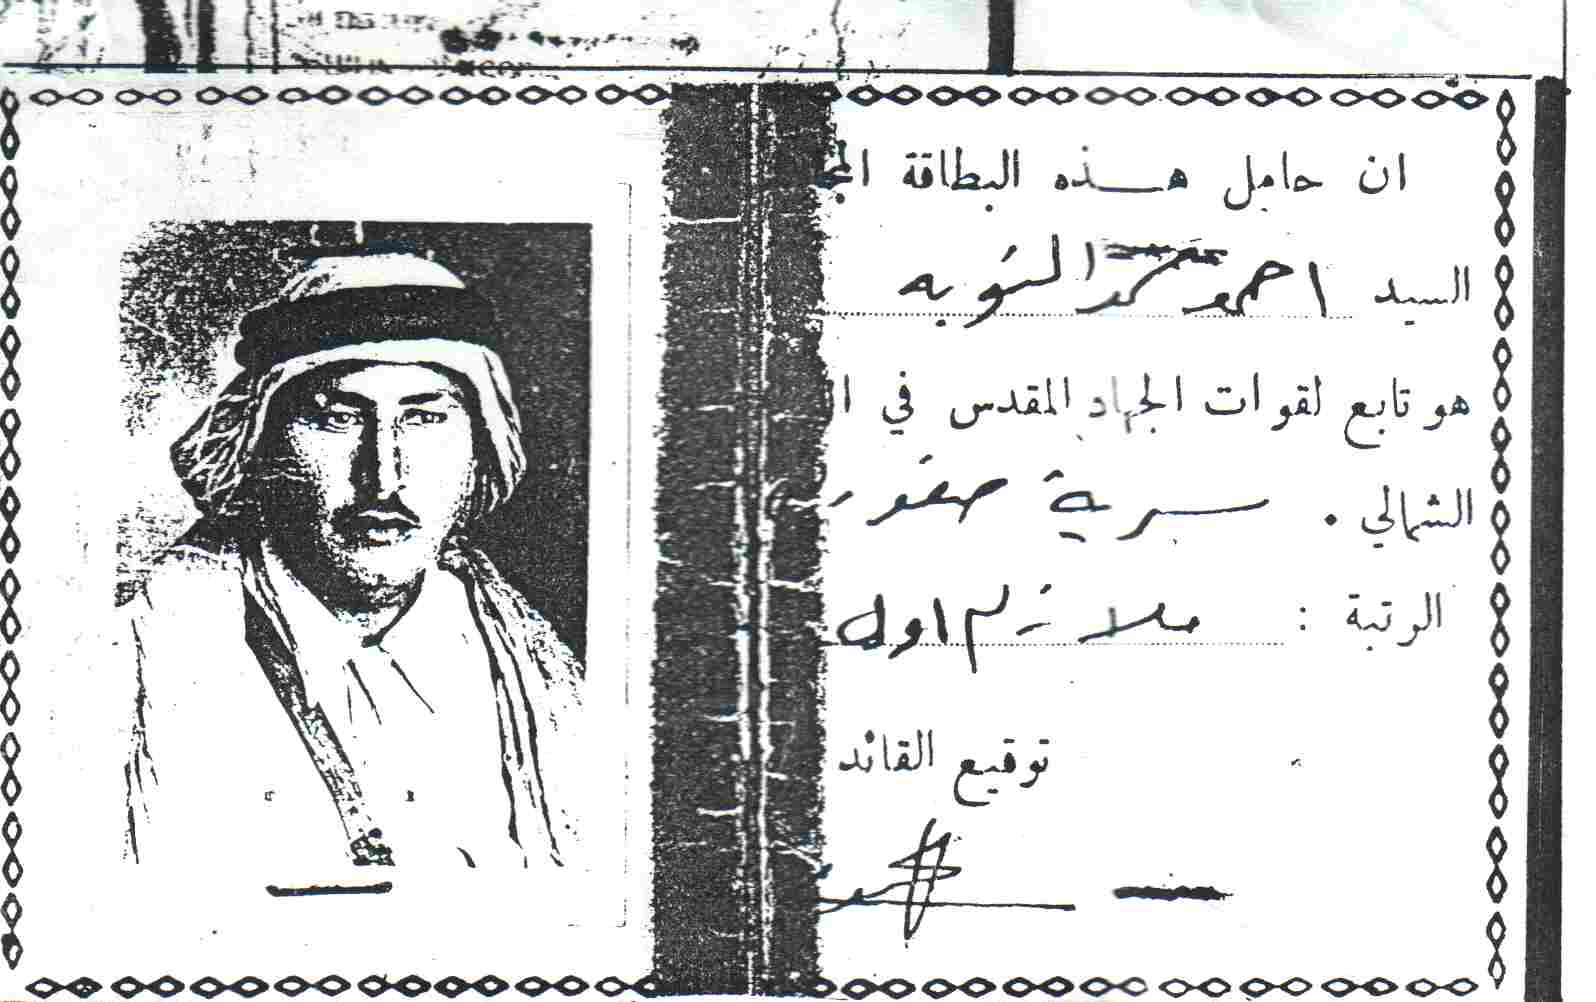 ان حامل هذه البطاقة
السيد احمد محمد التوبه
هو تابع لقوات الجهاد المقدس في
الشمالي . سرية
الرتبة : ملازم اول
توقيع القائد